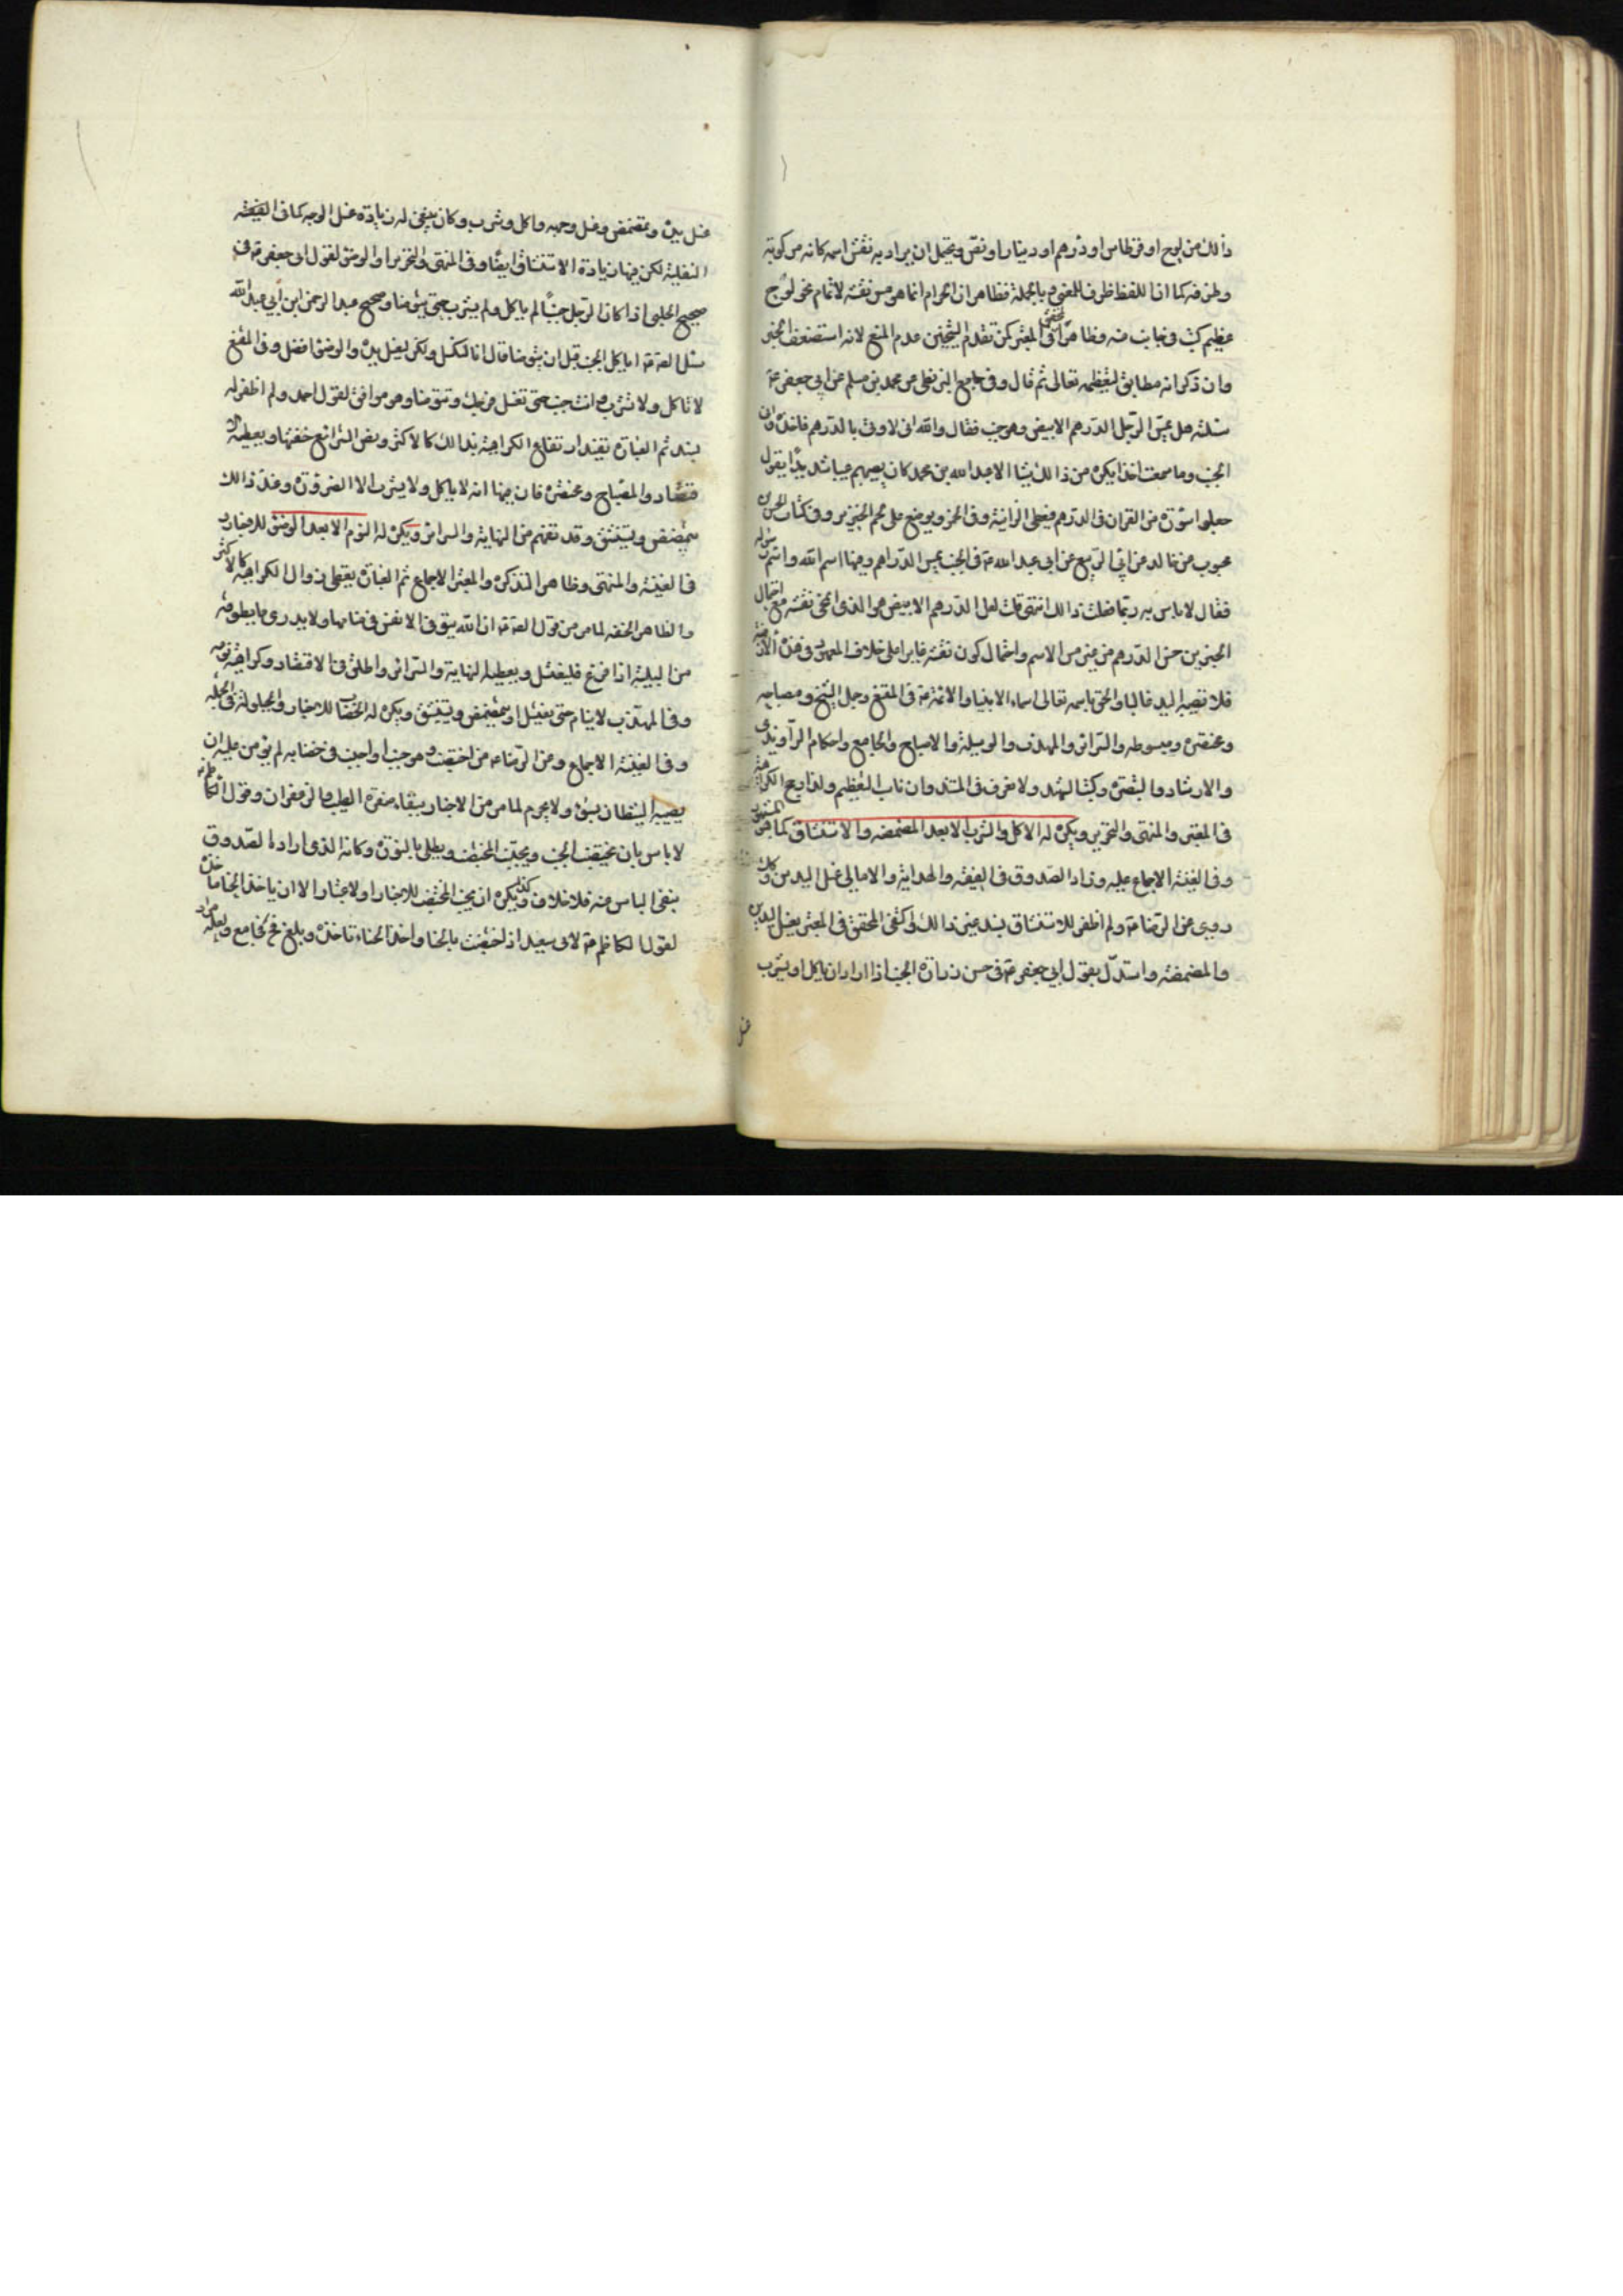 ذلك من لوح او قرطاس او درهم او دينار او نقش ويحتمل ان يراد به نقش اسمه كانه من كونه
وطرفه كما ان اللفظ ظرف للمعنى وبالجملة فظاهر ان الحرام انما هو مس نقشه لا تمام نحو لوح
عظيم كتب في جانب منه وظاهر المحقق في المعتبر كمن تقدم الشيخين عدم المنع لانه استضعف الخبر
وان ذكر انه مطابق لتعظيمه تعالى ثم قال وفي جامع البزنطي عن محمد بن مسلم عن ابي جعفر ع
سئلته هل يمس الرجل الدرهم الابيض وهو جنب فقال والله اني لاوتى بالدرهم فاخذه واني
لجنب وما سمعت احدا يكره من ذلك شيئا الا عبد الله بن محمد كان يعيبهم عيبا شديدا يقول
جعلوا سورة من القران في الدرهم فيعطى الزانية وفي الخمر ويوضع على لحم الخنزير وفي كتاب الحسن بن
محبوب عن خالد عن ابي الربيع عن ابي عبد الله ع في الجنب يمس الدراهم وفيها اسم الله واسم رسوله
فقال لا باس به ربما فعلت ذلك انتهى قلت لعل الدرهم الابيض هو الذي انمحى نقشه مع احتمال
الخبرين مس الدرهم من غير مس الاسم واحتمال كون نقشه غايرا على خلاف المعهود في هذه الازمنة
فلا تصيبه اليد غالبا والحق باسمه تعالى اسماء الانبياء والائمة ع في المقنع وجل الشيخ ومصباحه
ومختصره ومبسوطه والسرائر والمهذب والوسيلة والاصباح والجامع واحكام الراوندي
والارشاد والتبصرة وكتب الشهيد ولا نعرف في المستند وان ناسب التعظيم ولذا رجح الكراهة
في المعتبر والمنتهى والتحرير ويكره له الاكل والشرب الا بعد المضمضة والاستنشاق كما هو المشهور
وفي الغنية الاجماع عليه وزاد الصدوق في الفقيه والهداية والامالي غسل اليدين وكذا
روي عن الرضا ع ولم اظفر للاستنشاق بسند غير ذلك واكتفى المحقق في المعتبر بغسل اليدين
والمضمضة واستدل بقول ابي جعفر ع في حسن زرارة الجنب اذا اراد ان ياكل او يشرب
غسل
غسل يديه وتمضمض وغسل وجهه واكل وشرب وكان ينبغي له زيادة غسل الوجه كما في الفقيه
النفلية لكن فيها زيادة الاستنشاق ايضا وفي المنتهى والتحرير او الوضوء لقول ابي جعفر ع في
صحيح الحلبي اذا كان الرجل جنبا لم ياكل ولم يشرب حتى يتوضا وصحيح عبد الرحمن ابن ابي عبد الله
سئل الص ع اياكل الجنب قبل ان يتوضا قال انا لنكسل ولكن ليغسل يده والوضوء افضل وفي المقنع
لا تاكل ولا تشرب وانت جنب حتى تغسل فرجك وتتوضا وهو موافق لقول احمد ولم اظفر له
بسند ثم العبارة تفيد ارتفاع الكراهة بذلك كالاكثر وبعض الشرائع خففها ويعطيه الا
قتصاد والمصباح ومختصره فان فيها انه لا ياكل ولا يشرب الا الضرورة وعند ذلك
يتمضمض ويستنشق وقد تفهم من النهاية والسرائر ويكره له النوم الا بعد الوضوء للاخبار
في الغنية والمنتهى وظاهر التذكرة والمعتبر الاجماع ثم العبارة يعطي زوال الكراهة كالاكثر
والظاهر الخفة لما مر من قول الص ع ان الله يتوفى الانفس في منامها ولا يدري ما يطرقه
من البلية اذا فرغ فليغتسل ويعطيه النهاية والسرائر واطلق في الاقتصاد وكراهة نومه
وفي المهذب لا ينام حتى يغتسل او يتمضمض ويستنشق ويكره له الخضاب للاخبار والحيلولة في الجملة
وفي الغنية الاجماع وعن الرضا ع من اختضب وهو جنب او اجنب في خضابه لم يؤمن عليه ان
يصيبه الشيطان بسوء ولا يحرم لما مر من الاخبار ببقاء صفرة الطيب والزعفران وقول الكاظم ع
لا باس بان يختضب الجنب ويجنب المختضب ويطلي بالنورة وكانه الذي اراده الصدوق
بنفي الباس عنه فلا خلاف وكذا يكره ان يجنب المختضب للاخبار او الاعتبار الا ان ياخذ الحناء ماخذه
لقول الكاظم ع لابي سعيد اذا اختضبت بالحناء واخذ الحناء ماخذه وبلغ فح فجامع ولعله مراد